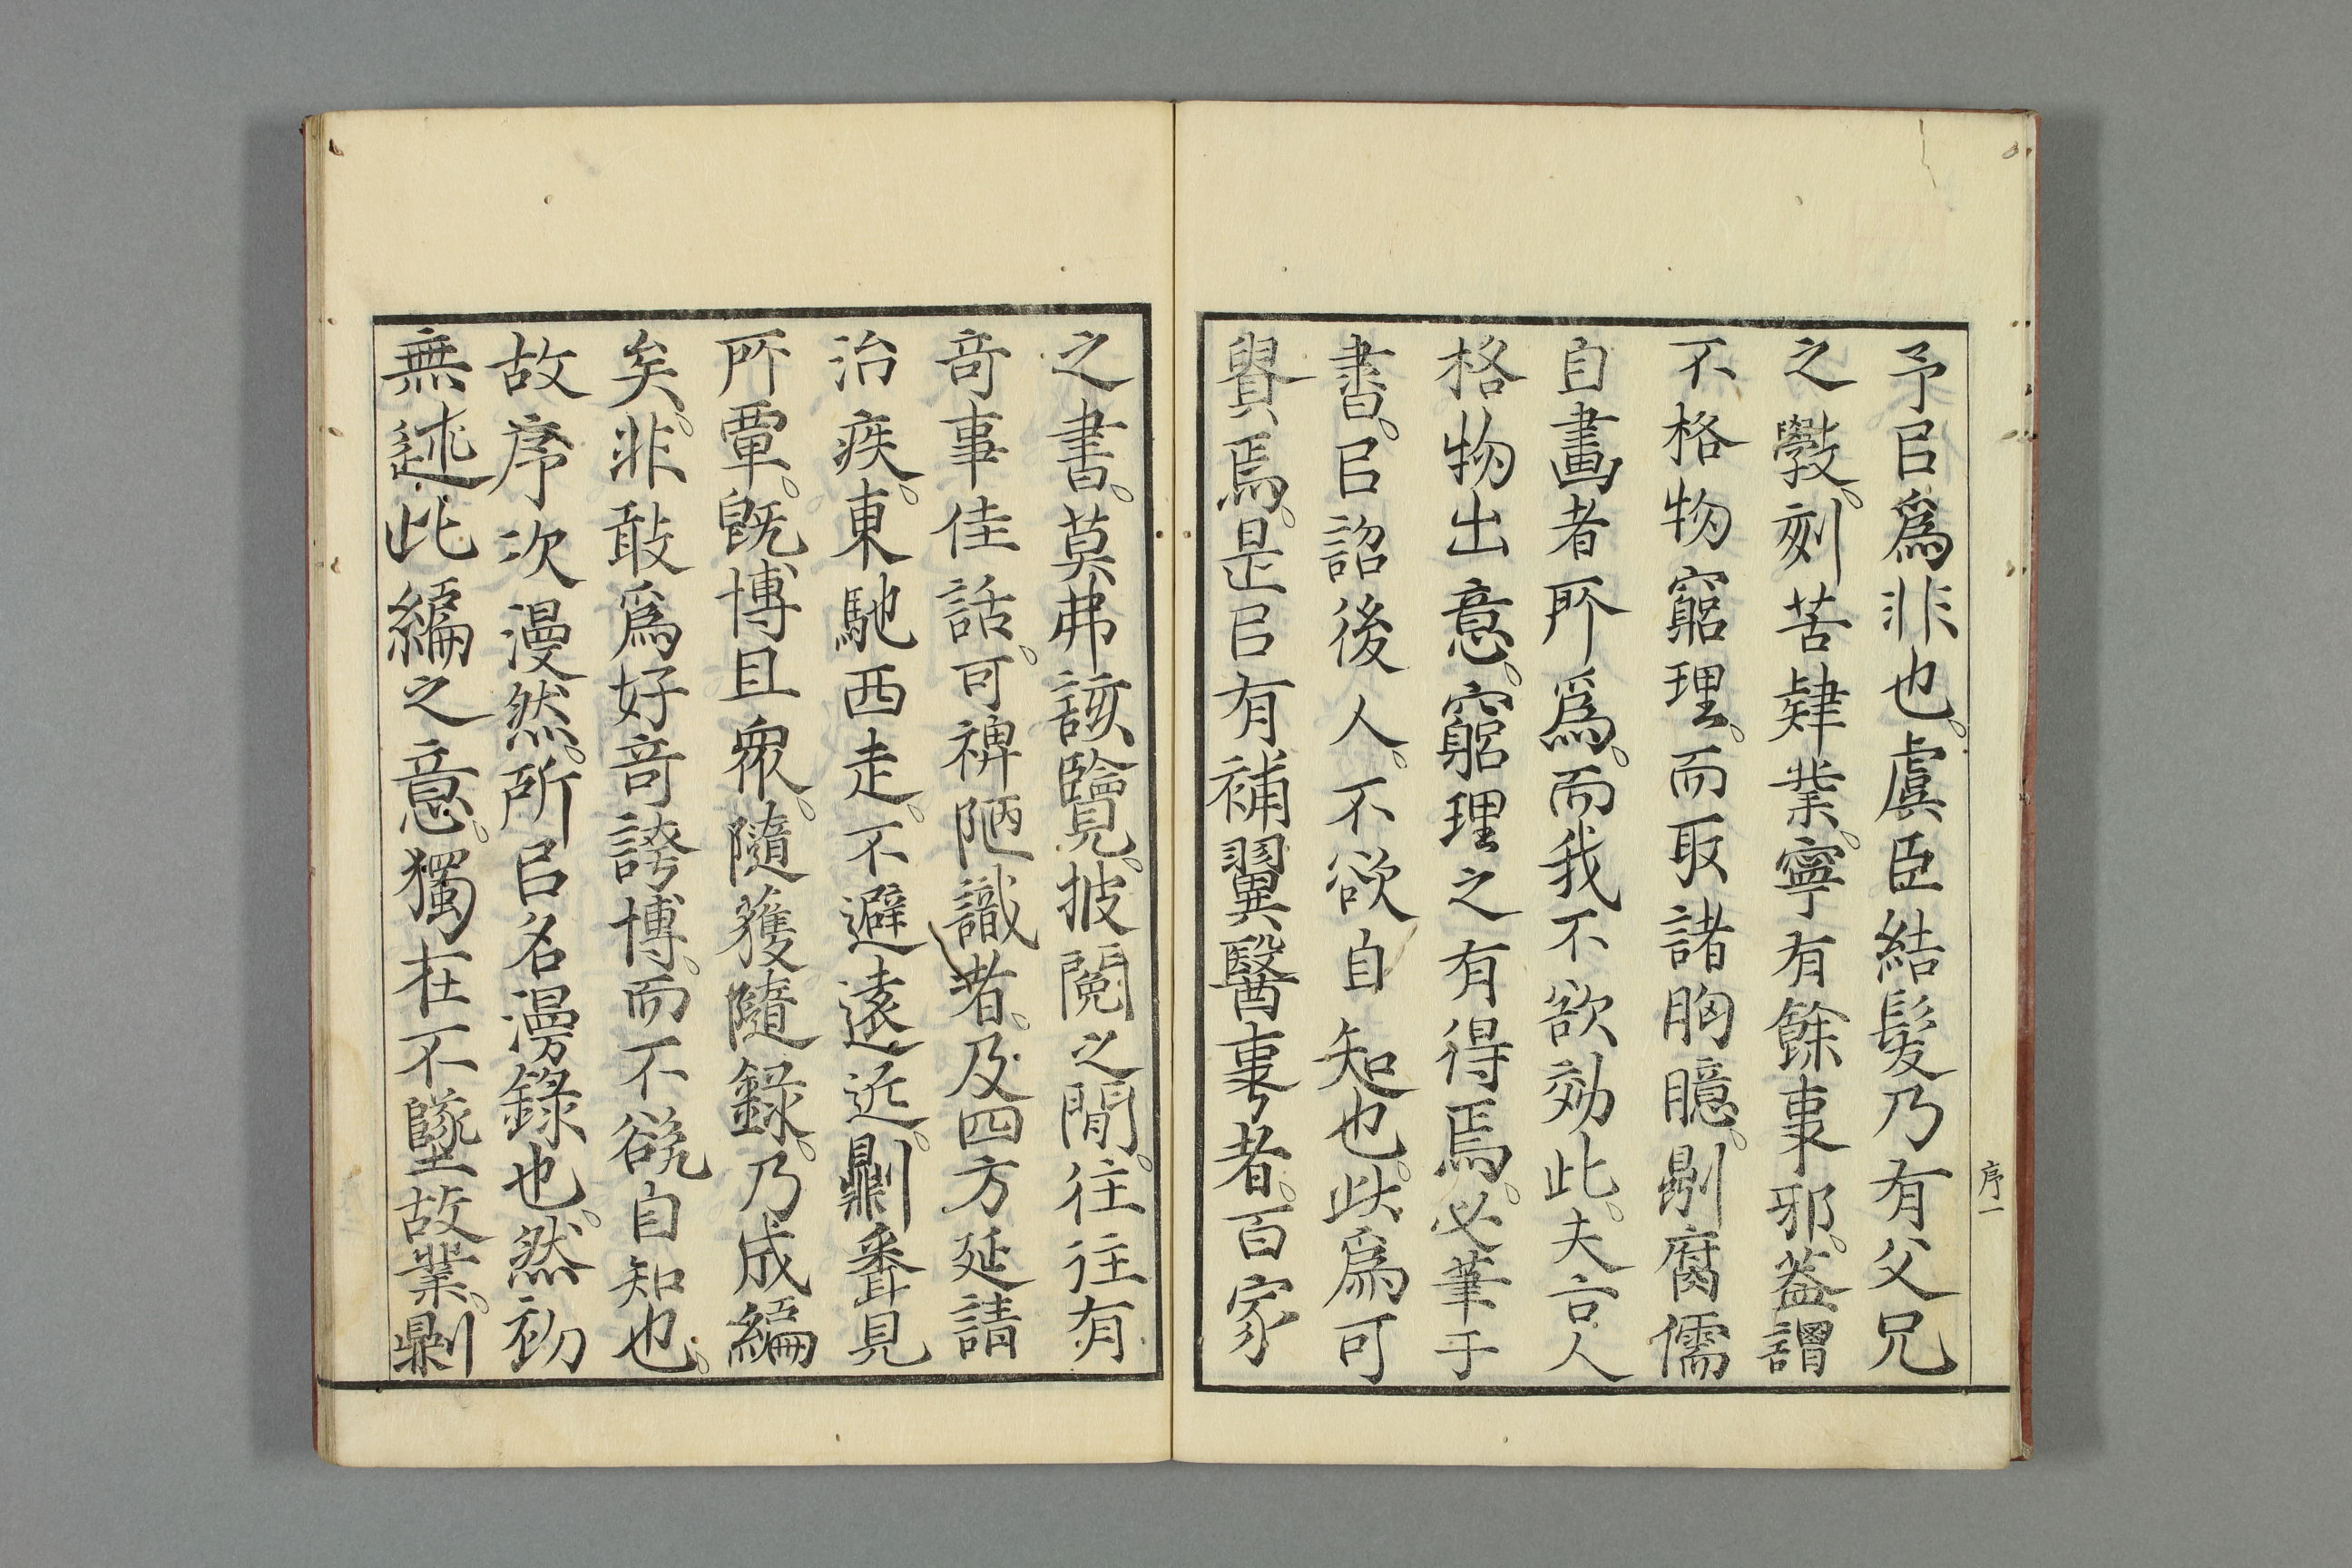 予㠯爲非也。虞臣結髮乃有父兄
之斅。刻苦肄業。寧有餘事邪。葢謂
不格物窮理。而取諸胸臆。剿腐儒
自畫者所爲。而我不欲効此。夫言人
格物出意。窮理之有得焉。必筆于
書。㠯詔後人。不欲自知也。此爲可
賢焉。是㠯有補翼醫事者。百家
序一
之書。莫弗該覽。披閱之間。往往有
奇事佳話。可裨陋識者。及四方延請
治疾。東馳西走。不避遠近。劓耳見
所覃。旣博且衆。隨獲隨錄。乃成編
矣。非敢爲好奇誇博。而不欲自知也。
故序次漫然。所㠯名漫錄也。然初
無述此編之意。獨在不墜故業。